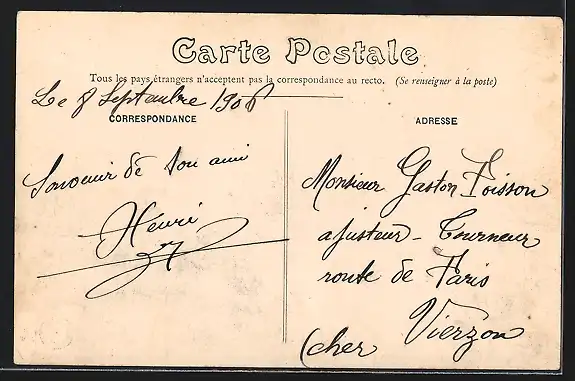 Carte Postale
Tous les pays étrangers n'acceptent pas la correspondance au recto. (Se renseigner à la poste)
Le 8 Septembre 1906
CORRESPONDANCE
Souvenir de ton ami
Henri
ADRESSE
Monsieur Gaston Poisson
ajusteur - Tourneur
route de Paris
Vierzon
(cher